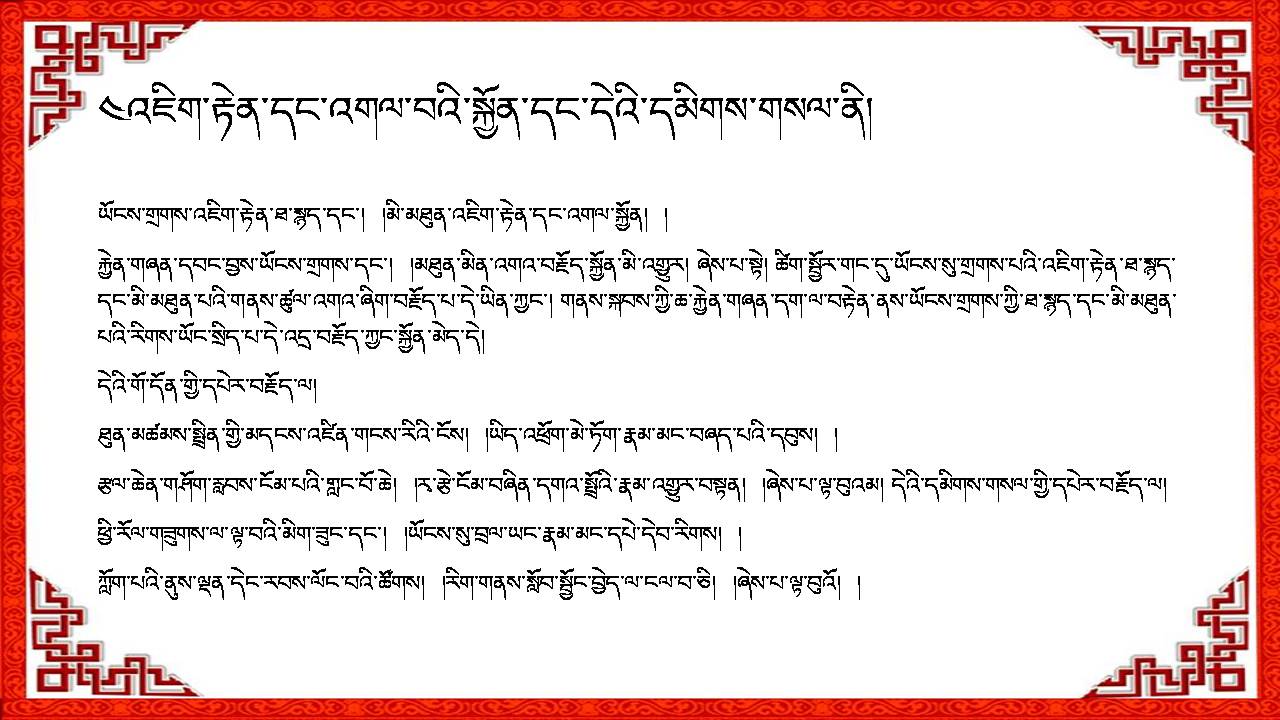 ༤འཇིག་རྟེན་དང་འགལ་བའི་སྐྱོན་དང་དེའི་དམིགས་གསལ་ནི།
ཡོངས་གྲགས་འཇིག་རྟེན་ཐ་སྙད་དང་། །མི་མཐུན་འཇིག་རྟེན་དང་འགལ་སྐྱོན། །
རྐྱེན་གཞན་དབང་བྱས་ཡོངས་གྲགས་དང་། །མཐུན་མིན་འགའ་བརྗོད་སྐྱོན་མི་འགྱུར། ཞེས་པ་སྟེ། ཚིག་སྦྱོར་གང་དུ་ཡོངས་སུ་གྲགས་པའི་འཇིག་རྟེན་ཐ་སྙད་
དང་མི་མཐུན་པའི་གནས་ཚུལ་འགའ་ཞིག་བརྗོད་པ་དེ་ཡིན་ཀྱང་། གནས་སྐབས་ཀྱི་ཆ་རྐྱེན་གཞན་དག་ལ་བརྟེན་ནས་ཡོངས་གྲགས་ཀྱི་ཐ་སྙད་དང་མི་མཐུན་
པའི་རིགས་ཡོང་སྲིད་པ་དེ་འདྲ་བརྗོད་ཀྱང་སྐྱོན་མེད་དེ།
དེའི་གོ་དོན་གྱི་དཔེར་བརྗོད་ལ།
ཐུན་མཚམས་སྤྲིན་གྱི་མདངས་འཛིན་གངས་རིའི་ངོས། །ཡིད་འཕྲོག་མེ་ཏོག་རྣམ་མང་བཞད་པའི་དབུས། །
རྩལ་ཆེན་གཤོག་རླབས་ངོམ་པའི་གླང་བོ་ཆེ། །རྭ་རྩེ་ངོམ་བཞིན་དགའ་སྤྲོའི་རྣམ་འགྱུར་བསྟན། །ཞེས་པ་ལྟ་བུའམ། དེའི་དམིགས་གསལ་གྱི་དཔེར་བརྗོད་ལ།
ཕྱི་རོལ་གཟུགས་ལ་ལྟ་བའི་མིག་ཟུང་དང་། །ཡོངས་སུ་བྲལ་ཡང་རྣམ་མང་དཔེ་དེབ་རིགས། །
ཀློག་པའི་ནུས་ལྡན་དེང་རབས་ལོང་བའི་ཚོགས། །རིག་གནས་སློབ་སྦྱོང་བྱེད་ལ་ངལ་བ་ཅི། །ཞེས་པ་ལྟ་བུའོ། །